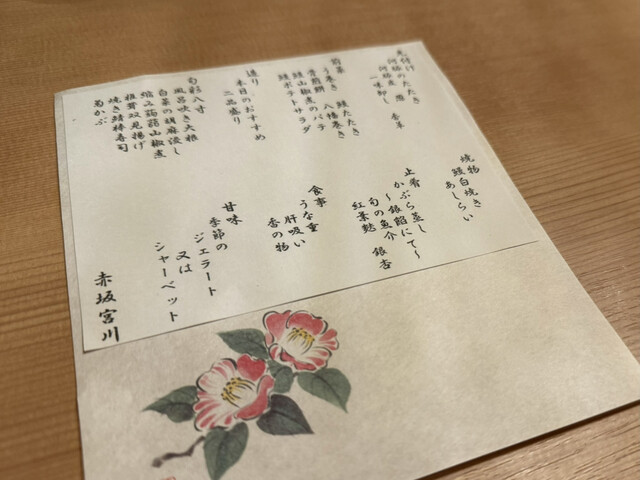 先付け
河豚煮凍 香草
一味卸し
前菜
う巻き 鰻たたき
骨煎餅 八幡巻き
鰻山椒煮のパテ
鰻ポテトサラダ
造り
本日のおすすめ
二品盛り
旬彩八寸
風呂吹き大根
白菜の胡麻浸し
縮み蒟蒻山椒煮
椎茸双見揚げ
焼き鯖棒寿司
菊かぶ
焼物
鰻白焼き
あしらい
止肴
かぶら蒸し
〜銀餡にて〜
旬の魚介 銀杏
紅葉麩
食事
うな重
肝吸い
香の物
甘味
季節の
ジェラート
又は
シャーベット
赤坂宮川